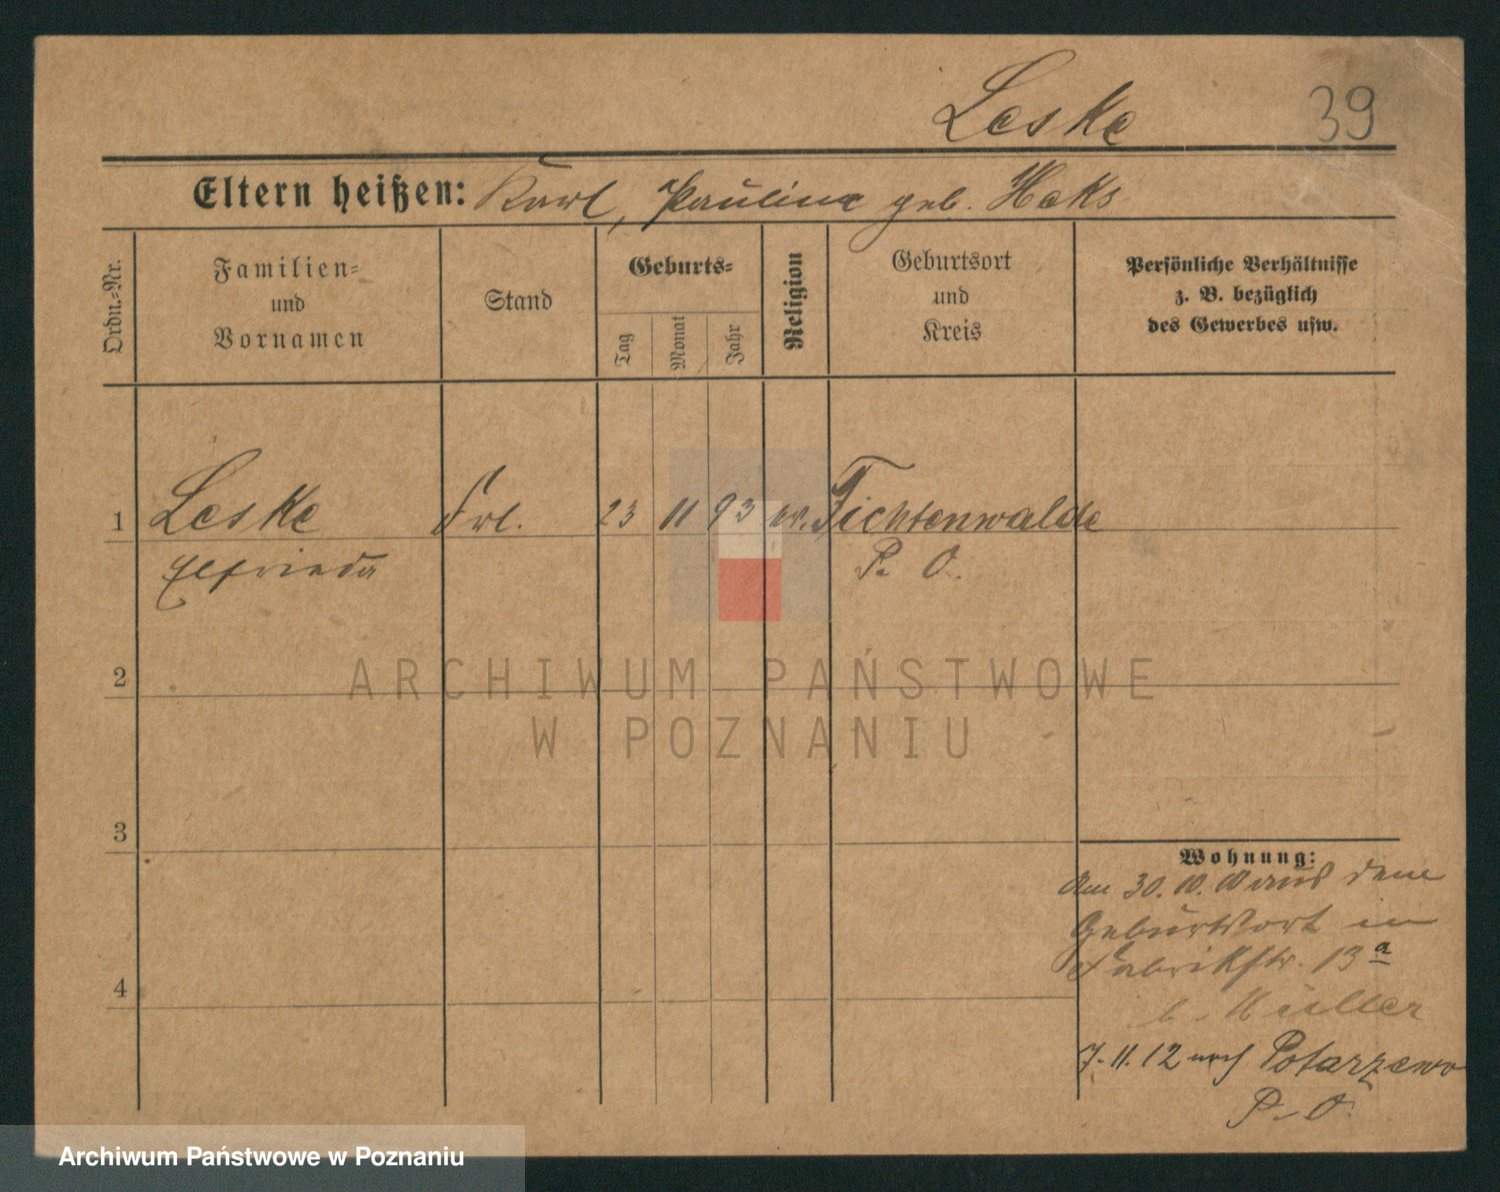 Leske
39
Eltern heißen: Karl, Pauline geb. Haks
Ordn.-Nr.
Familien-
und
Vornamen
Stand
Geburts-
Tag
Monat
Jahr
Religion
Geburtsort
und
Kreis
Persönliche Verhältnisse
z. B. bezüglich
des Gewerbes usw.
1 Leske Frl. 23 11 93 ev. Fichtenwalde
Elfrieda P. O.
2
ARCHIWUM PAŃSTWOWE
W POZNANIU
3
Wohnung:
Am 30. 10. 10 aus dem
Geburtsort in
Fabrikstr. 13a
b. Müller
4
7. 11. 12 nach Potarzewo
P. O.
Archiwum Państwowe w Poznaniu